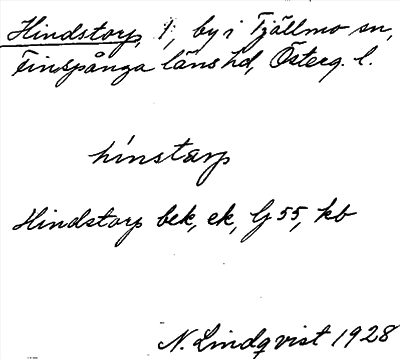 Hindstorp, 1, by i Tjällmo sn,
Finspånga läns hd, Österg. l.
hínstɑrp
Hindstorp bek, ek, G 55, kb
N. Lindqvist 1928